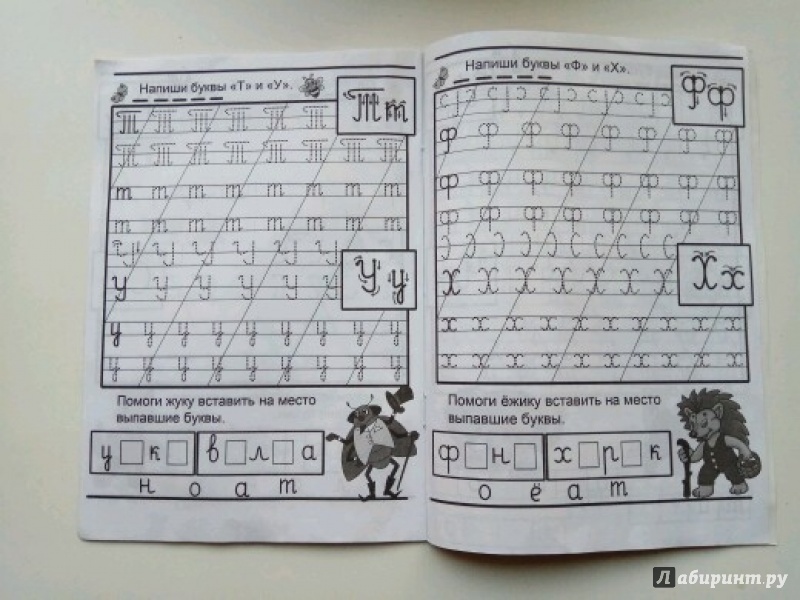 Напиши буквы «Т» и «У».
Т Т Т Т Т Т
Т т
Т Т Т Т Т Т Т Т
т т т т т т т т
т т т т т т т т
У У У У У У
У у
У У У У У У
у у у у у у у у у
у у у у у у у у у
Помоги жуку вставить на место
выпавшие буквы.
у□к□ в□л□а
н о а т
Напиши буквы «Ф» и «Х».
Ф ф
Ф Ф Ф Ф Ф Ф Ф Ф
ф ф ф ф ф ф ф ф
ф ф ф ф ф ф ф ф
Х х
Х Х Х Х Х Х Х
х х х х х х х х х
х х х х х х х х х
Помоги ёжику вставить на место
выпавшие буквы.
ф□н□ х□р□к
о ё а т
Лабиринт.ру